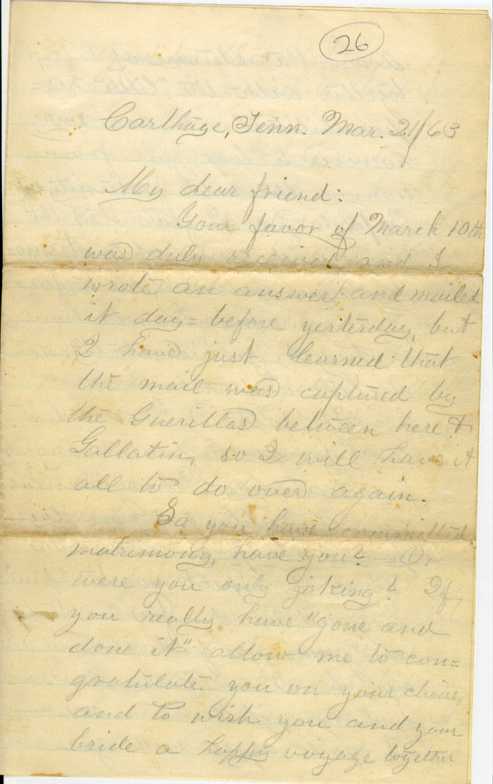 26
Carthage, Tenn. Mar. 21/63
My dear friend:
Your favor of March 10th
was duly received and I
wrote an answer and mailed
it day=before yesterday, but
I have just learned that
the mail was captured by
the Guerillas between here &
Gallatin, so I will have it
all to do over again.
So you have committed
matrimony, have you? Or
were you only joking? If
you really have "gone and
done it" allow me to con=
gratulate you on your choice,
and to wish you and your
bride a happy voyage together